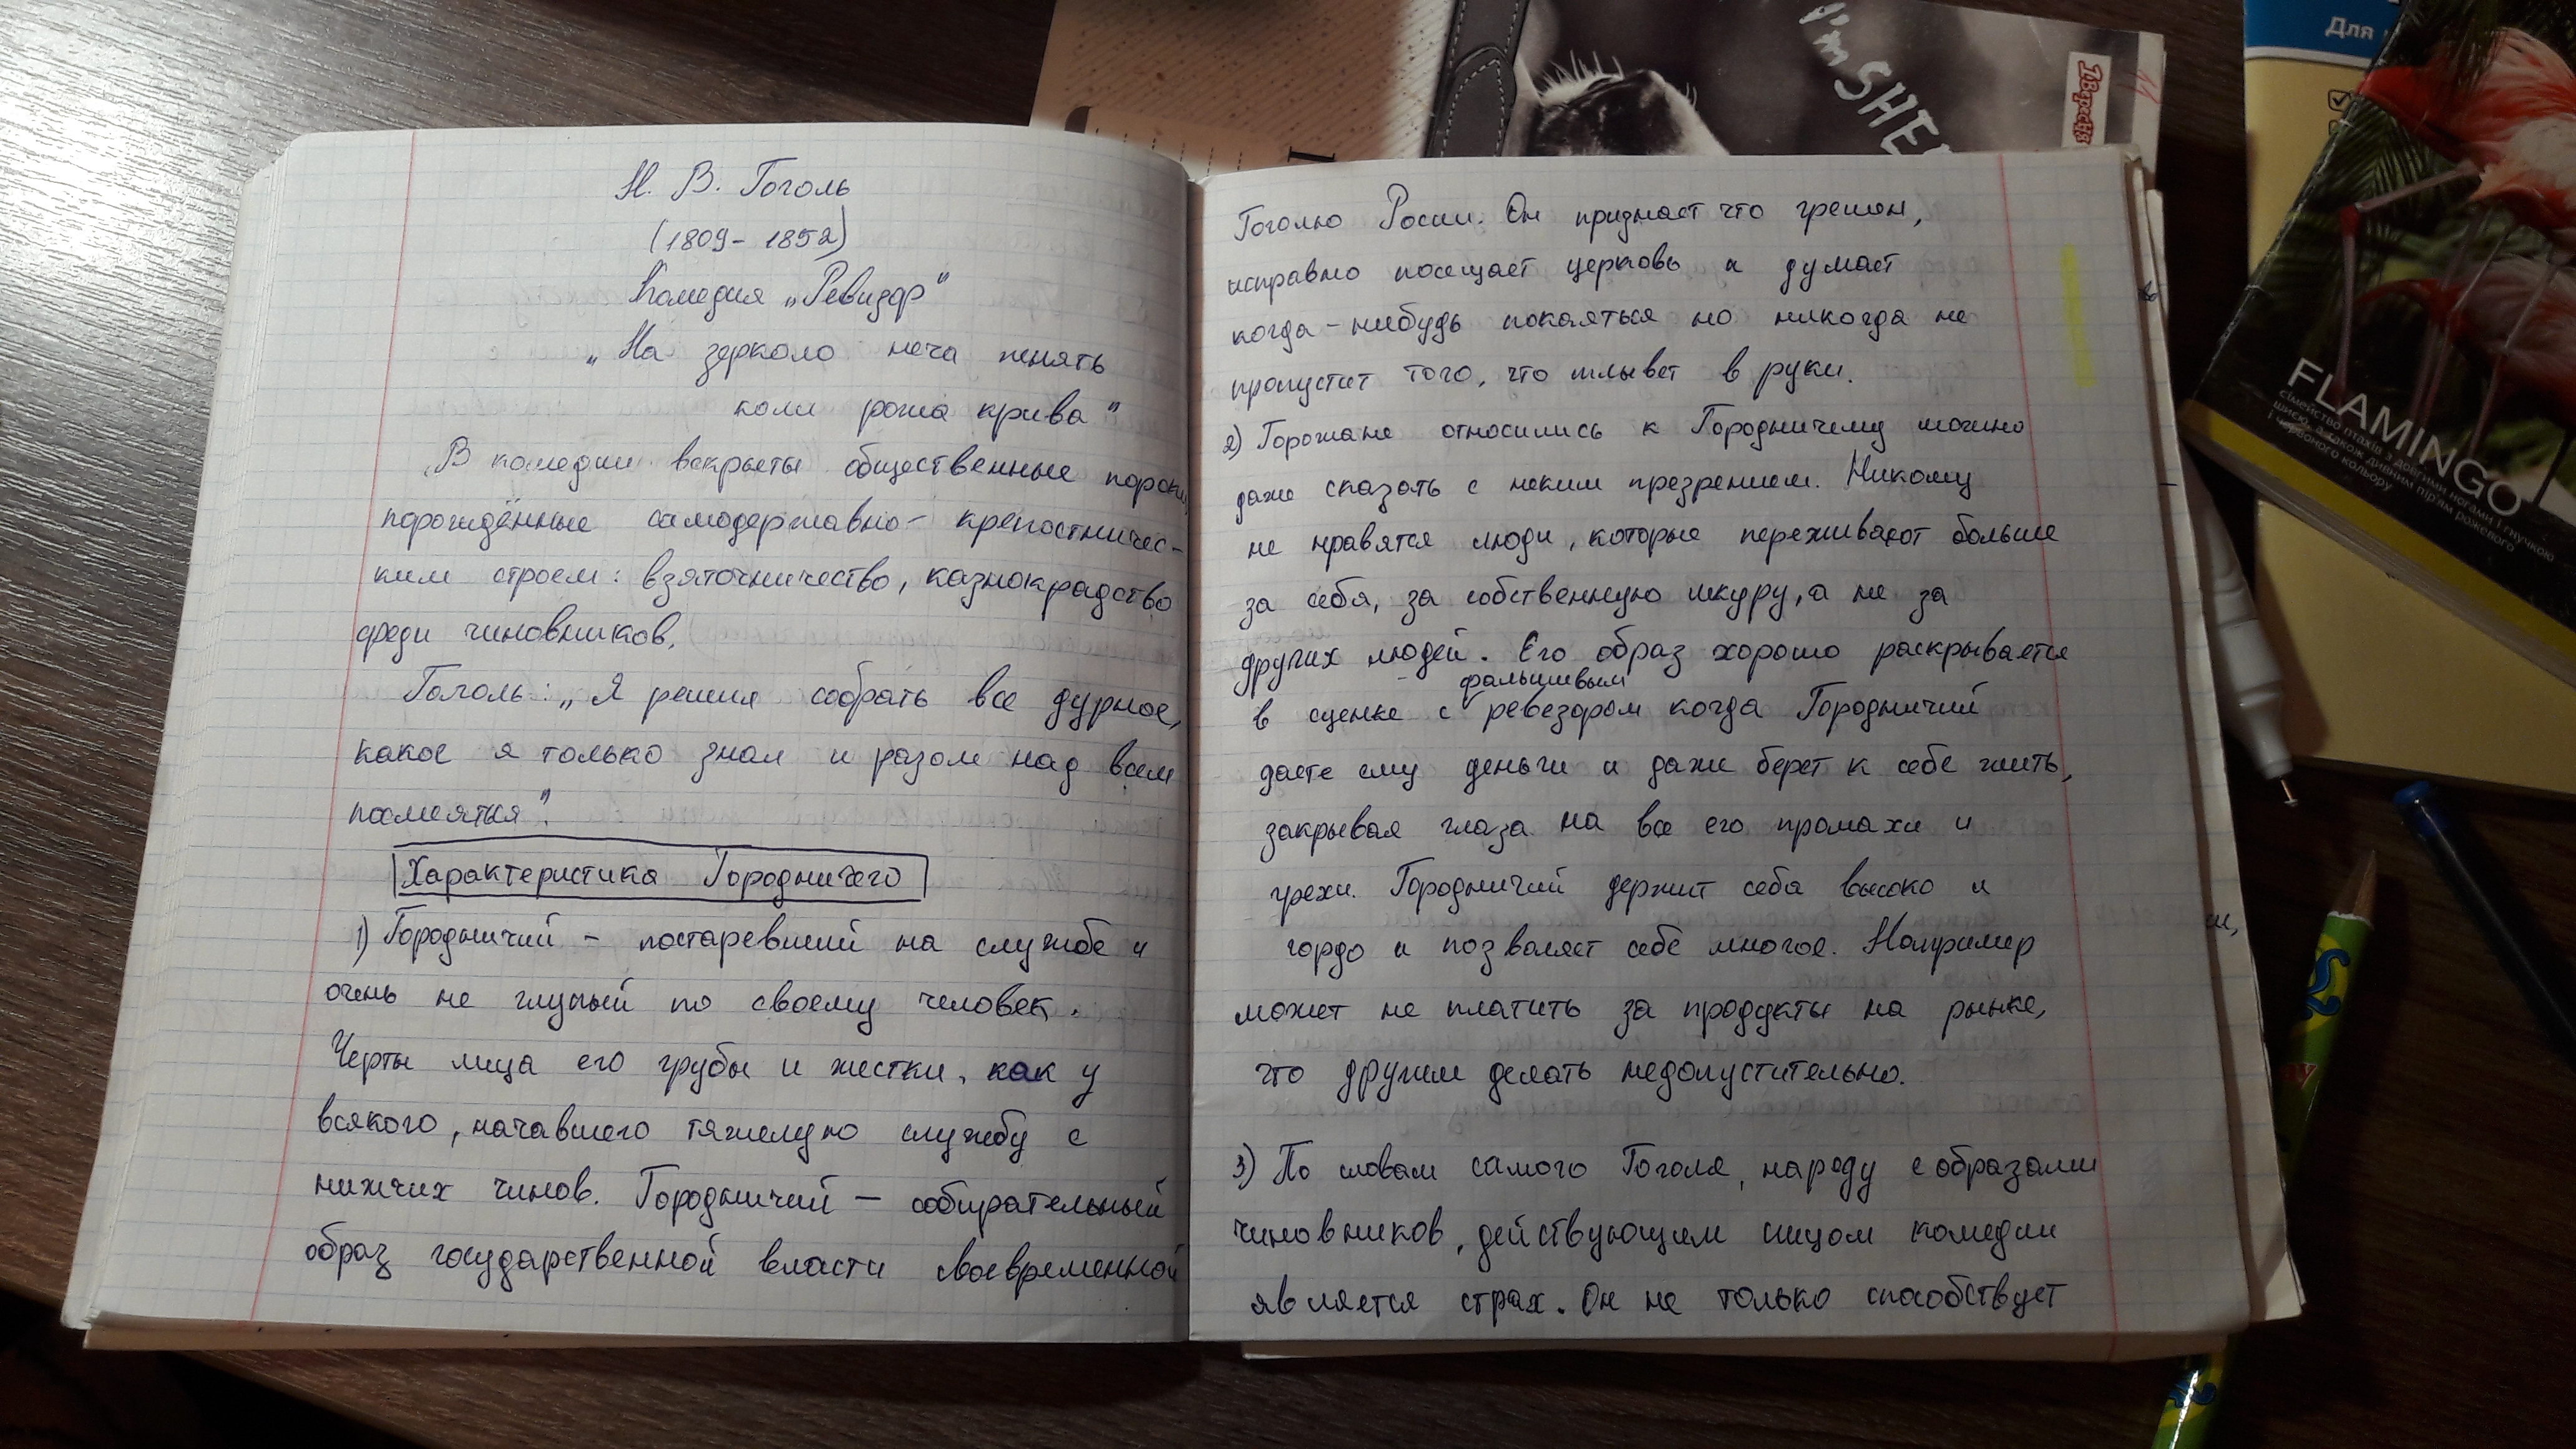 Н. В. Гоголь
(1809 - 1852)
Комедия „Ревизор"
„На зеркало неча пенять
коли рожа крива"
В комедии вскрыты общественные пороки,
порождённые самодержавно- крепостничес-
ким строем: взяточничество, казнокрадство
среди чиновников.
Гоголь: „Я решил собрать все дурное,
какое я только знал и разом над всем
посмеяться".
Характеристика Городничего
1) Городничий - постаревший на службе и
очень не глупый по своему человек.
Черты лица его грубы и жестки, как у
всякого, начавшего тяжелую службу с
нижчих чинов. Городничий — собирательный
образ государственной власти своевременной
Гоголю Росии. Он признает что грешен,
исправно посещает церковь и думает
когда-нибудь покаяться но никогда не
пропустит того, что плывет в руки.
2) Горожане относились к Городничему можно
даже сказать с неким презрением. Никому
не нравятся люди, которые переживают больше
за себя, за собственную шкуру, а не за
других людей. Его образ хорошо раскрывается
фальшивым
в сценке с ревезором когда Городничий
даете ему деньги и даже берет к себе жить,
закрывая глаза на все его промахи и
грехи. Городничий держит себа высоко и
гордо и позволяет себе многое. Например
может не платить за продукты на рынке,
что другим делать недопустительно.
3) По словам самого Гоголя, народу с образами
чиновников, действующим лицом комедии
является страх. Он не только способствует
I'm SHE
1Вересня
Для
FLAMINGO
сімейство птахів з довгими ногами і гнучкою
шиєю, а також дивним пір'ям рожевого
і червоного кольору